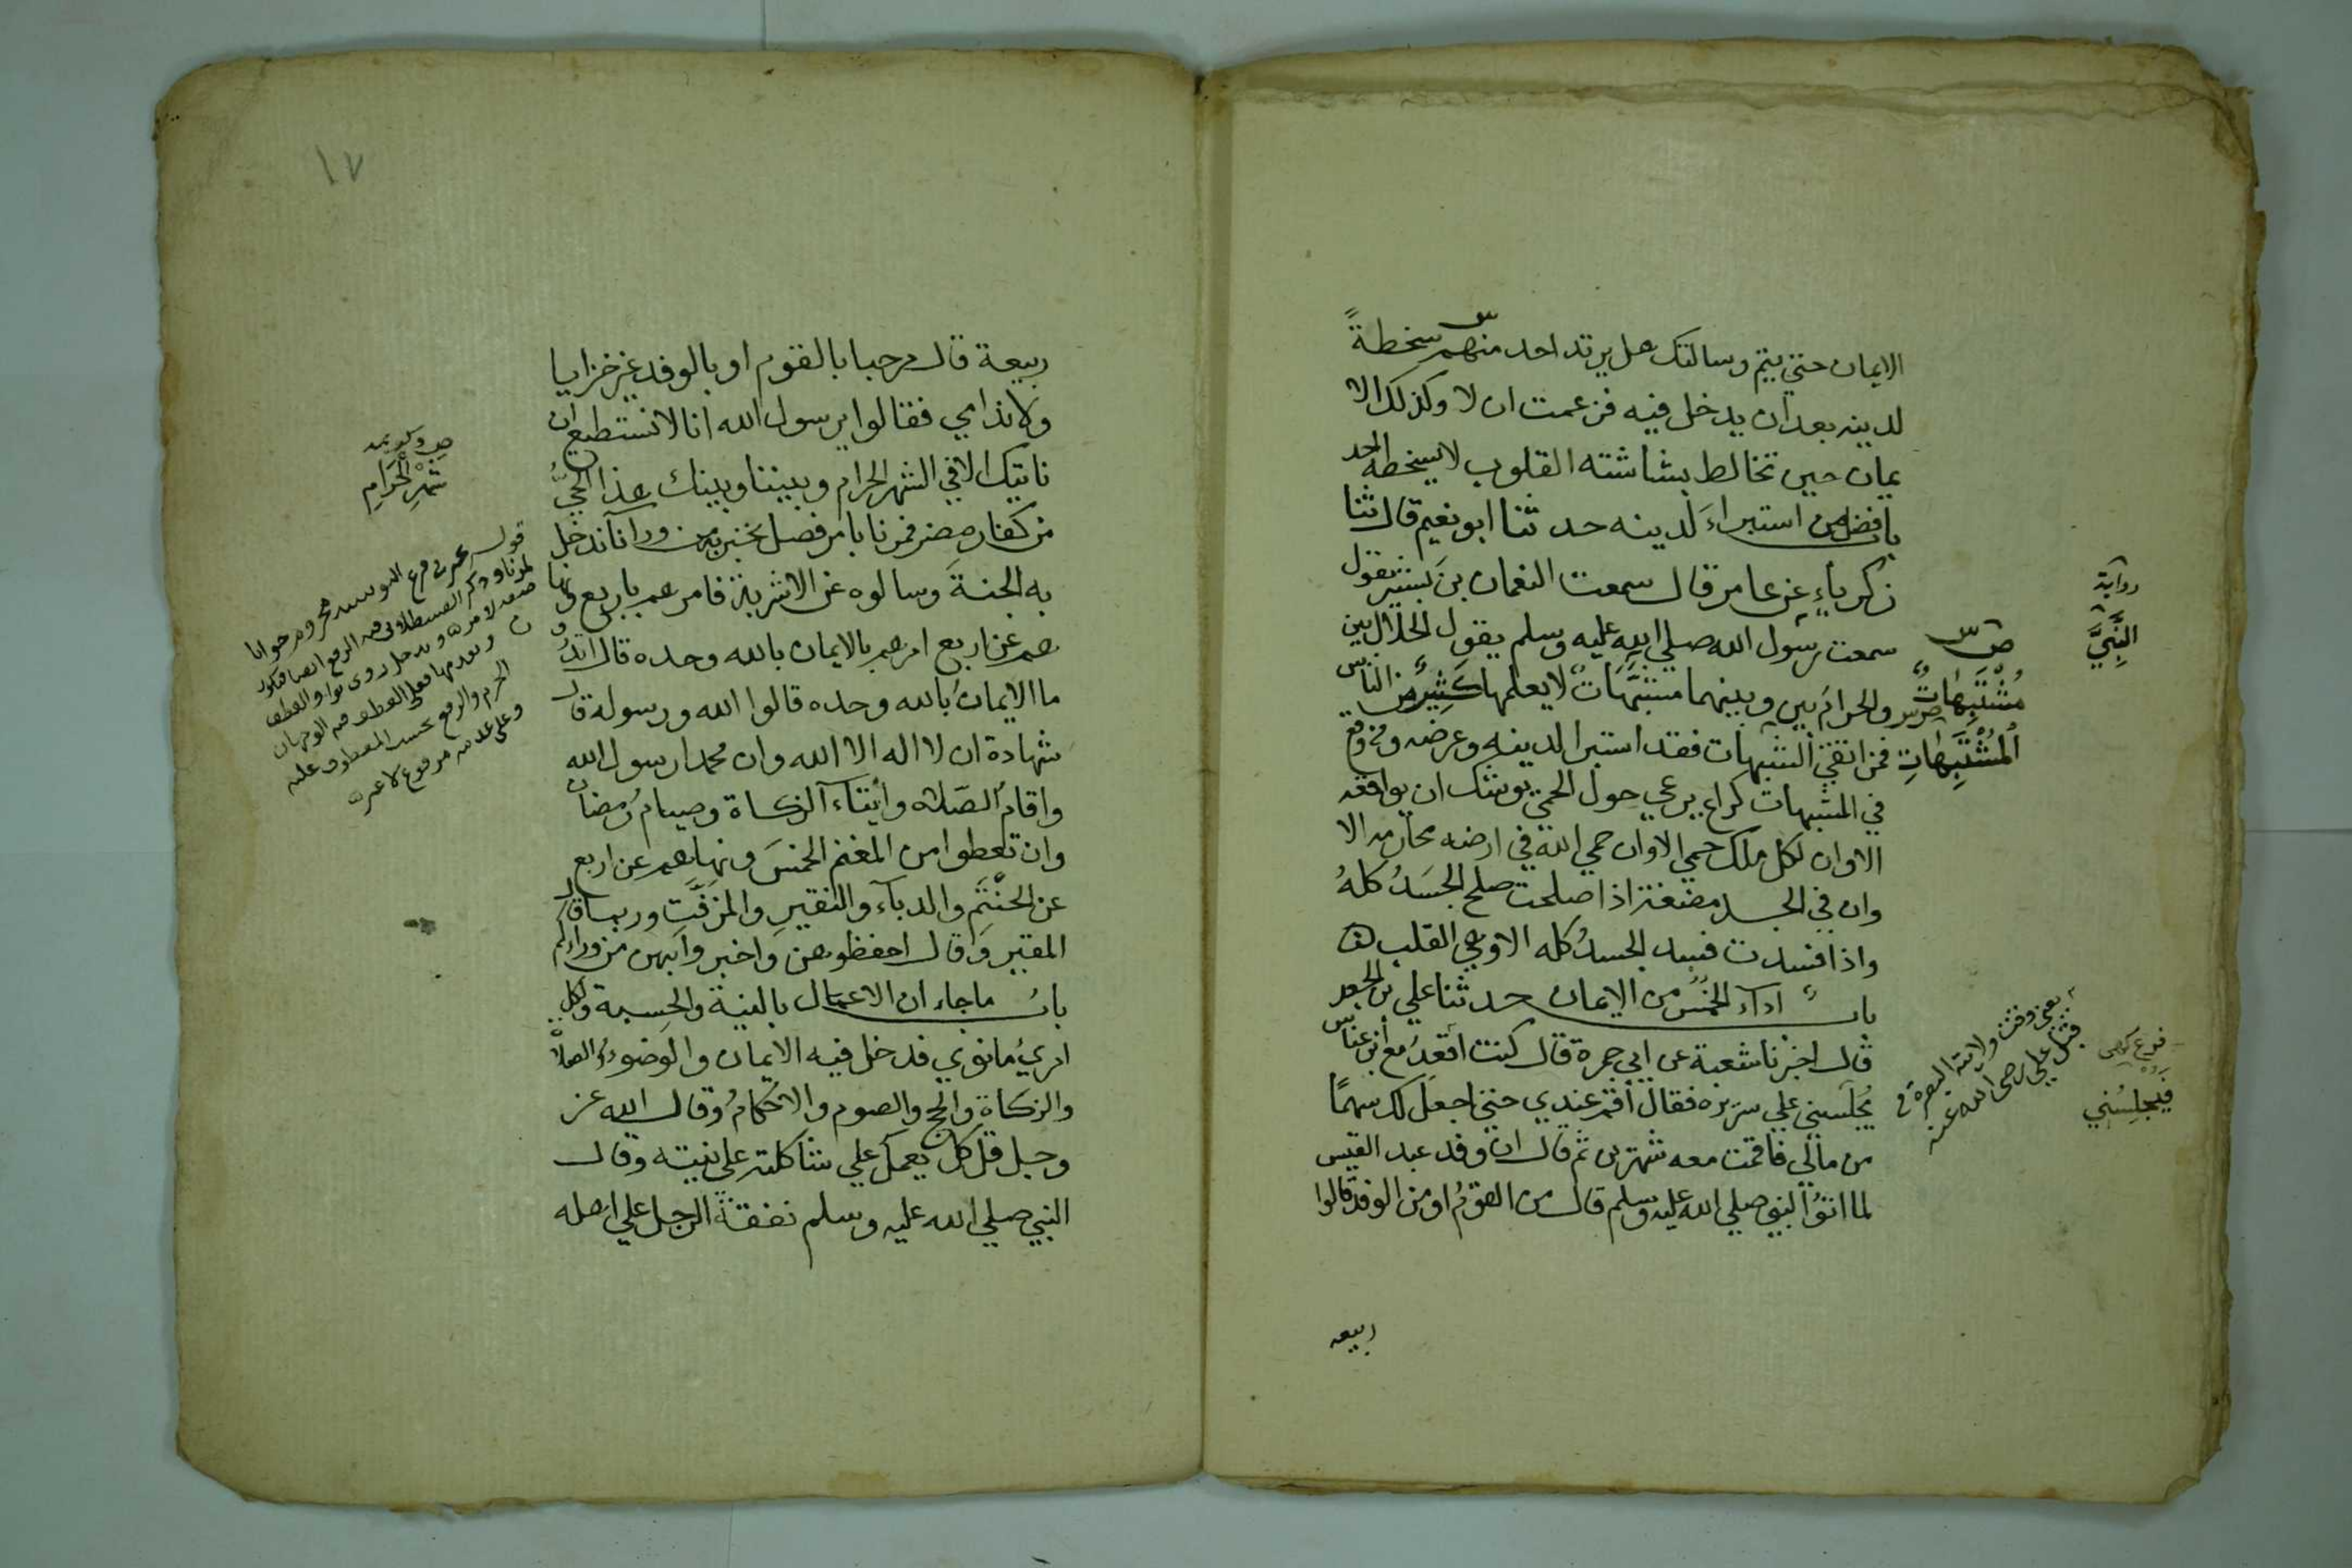 الايمان حتي يتم وسالتك هل يرتد احد منهم سخطةً
لدينه بعد ان يدخل فيه فزعمت ان لا وكذلك الا
يمان حين تخالط بشاشته القلوب لا يسخطه احد
باب فضل من استبراء لدينه حدثنا ابو نعيم قال ثنا
زكرياءٍ عن عامر قال سمعت النعمان بن بشير يقول
سمعت رسول الله صلي الله عليه وسلم يقول الحلال بين
والحرام بين وبينهما مشبَّهَاتٌ لا يعلمها كثيرٌ من الناس
فمن اتقي الشبهات فقد استبرا لدينه وعرضه ومن وقع
في المشبهات كراع يرعي حول الحمي يوشك ان يواقعه
الا وان لكل ملك حمي الا وان حمي الله في ارضه محارمه الا
وان في الجسد مضغة اذا صلحت صلح الجسَدُ كلهُ
واذا فسدت فسد الجسدُ كله الا وهي القلب
باب اداء الخمس من الايمان حدثنا علي بن الجعد
قال اخبرنا شعبة عن ابي جمرة قال كنت اقعدُ مع ابن عباس
يُجلسني علي سريره فقال أقم عندي حتي اجعلَ لك سهمًا
من مالي فاقمت معه شهرين ثم قال ان وفد عبد القيس
لما اتوُا النبي صلي الله عليه وسلم قال من القومُ او من الوفد قالوا
ربيعه
رواية
النَّبِيَّ
ص س
مُشْتَبِهَاتٌ
المُشْتَبِهَاتِ
يعني وقت ولايته البصرة في
قبل علي رضي الله عنه
فَيُجلِسُني
١٧
ربيعة قال مرحبا بالقوم او بالوفد غير خزايا
ولا ندامي فقالوا يرسول الله انا لا نستطيع ان
ناتيك الا في الشهر الحرام وبيننا وبينك هذا الحيُّ
من كفار مضر فمرنا بامر فصل نخبر به من وراءنا ندخل
به الجنةَ وسالوه عن الاشربة فامرهم باربع ونها
هم عن اربع امرهم بالايمان بالله وحده قال اتد
ما الايمانُ بالله وحده قالوا الله ورسوله قال
شهادة ان لا اله الا الله وان محمدا رسول الله
واقامُ الصلاه وأيتاء الزكاة وصيامُ رمضان
وان تعطوا من المغنم الخمسَ ونهاهم عن اربع
عن الحَنْتَمِ والدباء والنقيرِ والمزفَّتِ وربما قال
المقير وقال احفظوهن واخبروا بهن من وراءكم
بابُ ما جاء ان الاعمال بالنية والحسبة ولكل
امريُ ما نوي فدخل فيه الايمان والوضوءُ والصلاة
والزكاة والحج والصوم والاحكامُ وقال الله عز
وجل قل كل يعمل علي شاكلته علي نيته وقال
النبي صلي الله عليه وسلم نفقة الرجل علي اهله
شَهْرِ الْحَرَامِ